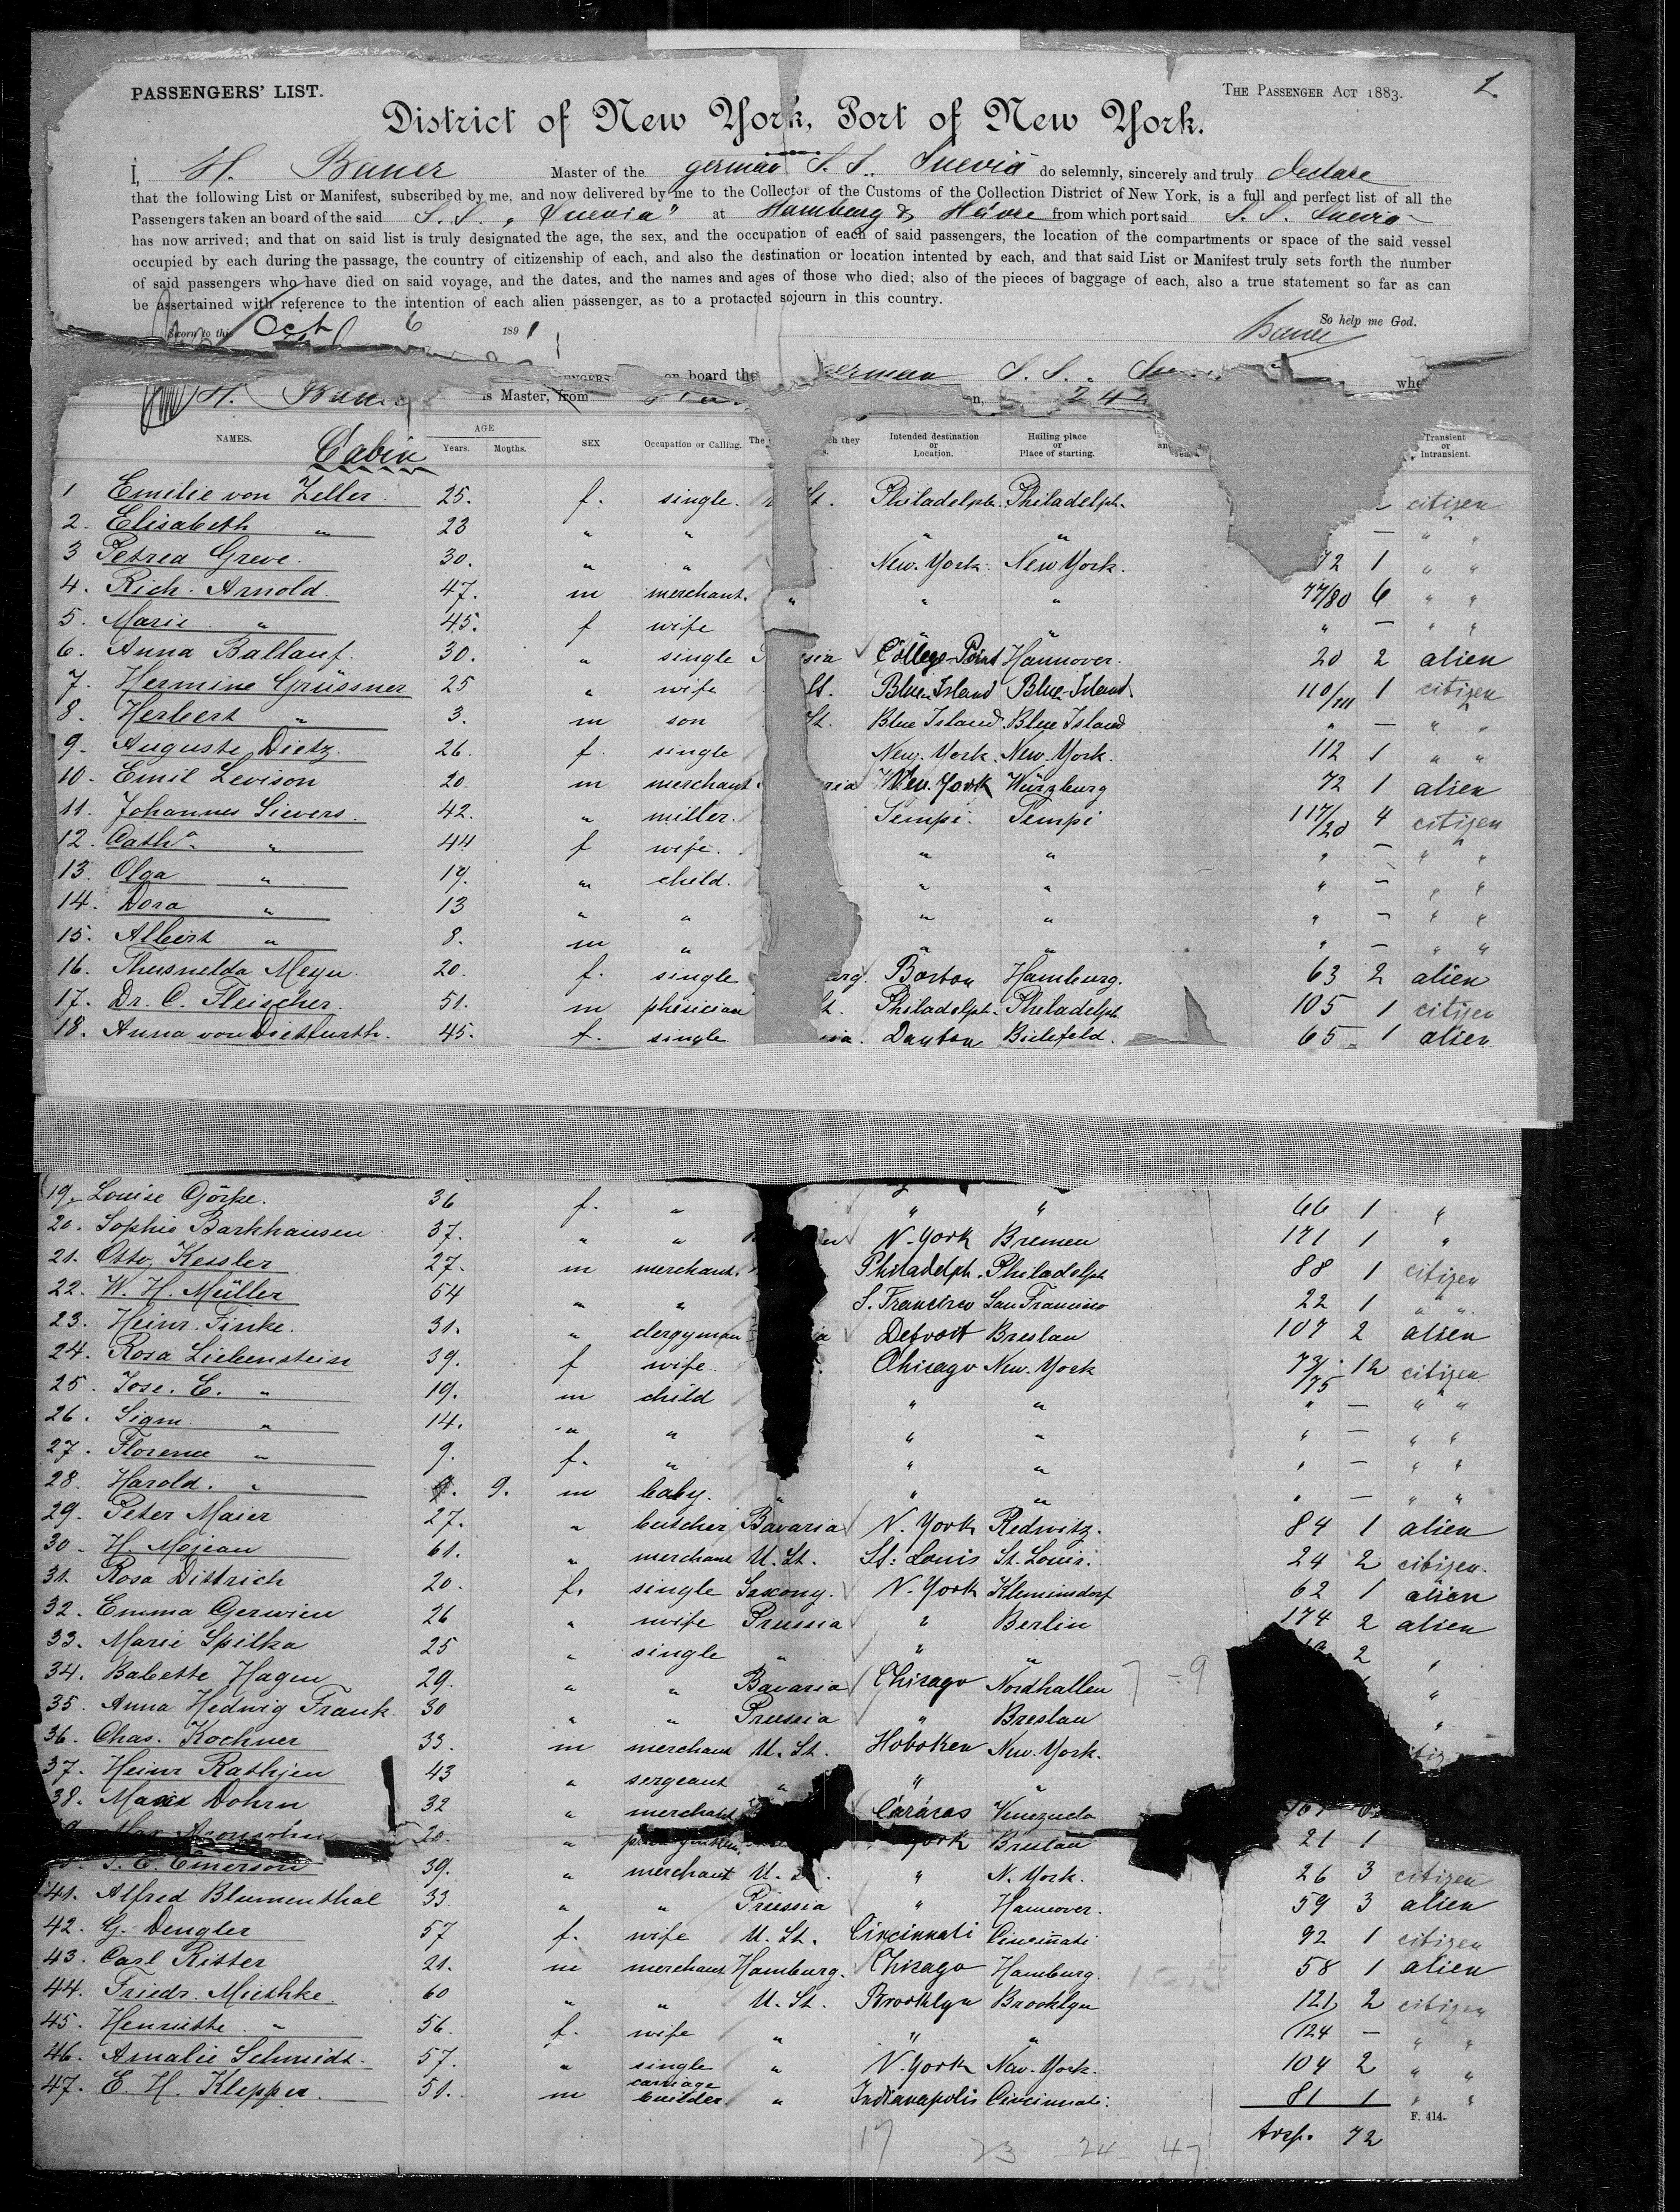 PASSENGERS' LIST.
THE PASSENGER ACT 1883.
1.
District of New York, Port of New York.
I, H. Bauer Master of the german S. S. Suevia do solemnly, sincerely and truly declare
that the following List or Manifest, subscribed by me, and now delivered by me to the Collector of the Customs of the Collection District of New York, is a full and perfect list of all the
Passengers taken an board of the said S. S. „Suevia" at Hamburg & Hâvre from which port said S. S. Suevia
has now arrived; and that on said list is truly designated the age, the sex, and the occupation of each of said passengers, the location of the compartments or space of the said vessel
occupied by each during the passage, the country of citizenship of each, and also the destination or location intented by each, and that said List or Manifest truly sets forth the number
of said passengers who have died on said voyage, and the dates, and the names and ages of those who died; also of the pieces of baggage of each, also a true statement so far as can
be assertained with reference to the intention of each alien passenger, as to a protacted sojourn in this country.
So help me God.
Sworn to this Oct 6 1891
Bauer
on board the German S. S.
H. Bauer is Master, from
NAMES. AGE Years. Months. SEX Occupation or Calling. Intended destination or Location. Hailing place or Place of starting. Transient or Intransient.
Cabin
1 Emilie von Zeller. 25. f. single. St. Philadelph. Philadelph. citizen
2. Elisabeth " 23 " " " " — " "
3 Petrea Greve. 30. " " New-York. New York. 72 1 " "
4. Rich. Arnold. 47. m merchant. " " " 77/80 6 " "
5. Marie " 45. f wife " " " — " "
6. Anna Ballauf. 30. " single College-Point Hannover. 20 2 alien
7. Hermine Grüssner 25 " wife St. Blue-Island Blue-Island 110/111 1 citizen
8. Herbert " 3. m son St. Blue Island Blue Island " — " "
9. Auguste Dietz. 26. f. single New-York. New-York. 112 1 " "
10. Emil Levison 20 m merchant New-York Würzburg 72 1 alien
11. Johannes Sievers. 42. " miller. Tempi. Tempi 117/20 4 citizen
12. Cath. " 44 f wife. " " " — " "
13. Olga " 19. " child. " " " — " "
14. Dora " 13 " " " " " — " "
15. Albert " 8. m " " " " — " "
16. Thusnelda Meyn. 20. f. single Boston Hamburg. 63 2 alien
17. Dr. C. Fleischer. 51. m phisician Philadelph. Philadelph 105 1 citizen
18. Anna von Dietfurth. 45. f. single Dayton Bielefeld. 65 1 alien
19. Louise Görke. 36 f. " " " 66 1 "
20. Sophie Barkhausen 37. " " N-York Bremen 171 1 "
21. Otto Kessler 27. m merchant. Philadelph. Philadelph 88 1 citizen
22. W. H. Müller 54 " " S. Francisco San Francisco 22 1 " "
23. Heinr. Finke. 31. " clergyman Detroit Breslau 107 2 alien
24. Rosa Liebenstein 39. f wife. Chicago New-York 73/75 12 citizen
25. Jose. E. " 19. m child " " " — " "
26. Sigm. " 14. " " " " " — " "
27. Florence " 9. f. " " " " — " "
28. Harold. " 9. m baby. " " " " — " "
29. Peter Maier 27. " butcher Bavaria N. York Redwitz. 84 1 alien
30. H. Mojean 61. " merchant U. St. St: Louis St. Louis. 24 2 citizen.
31. Rosa Dittrich 20. f. single Saxony. N. York Kleminsdorf 62 1 alien
32. Emma Gerwien 26 " wife Prussia " Berlin 174 2 alien
33. Marie Spilka 25 " single " " " 2 "
34. Babette Hagen 29. " " Bavaria Chicago Nordhallen 7 - 9 "
35. Anna Hedwig Frank 30 " " Prussia " Breslau "
36. Chas. Kochner 33. m merchant U. St. Hoboken New-York.
37. Heinr Rathjen 43 " sergeant " " "
38. Dohrn 32 " merchant Cáracas Venezuela
Max Aronsohn 20. " York Breslau 21 1
Emerson 39. " merchant U. " N. York. 26 3 citizen
41. Alfred Blumenthal 33. " " Prussia " Hannover. 59 3 alien
42. G. Dengler 57 f. wife U. St. Cincinnati Cincinnati 92 1 citizen
43. Carl Ritter 21. m merchant Hamburg. Chicago Hamburg. 58 1 alien
44. Friedr. Mischke. 60 " " U. St. Brooklyn Brooklyn 121 2 citizen
45. Henriette " 56. f. wife " " " /124 — " "
46. Amalie Schmidt. 57. " single " N. York New-York. 104 2 " "
47. E. H. Klepper. 51. m carriage builder " Indianapolis Cincinnati. 81 1 " "
F. 414.
72
17 23 24 47